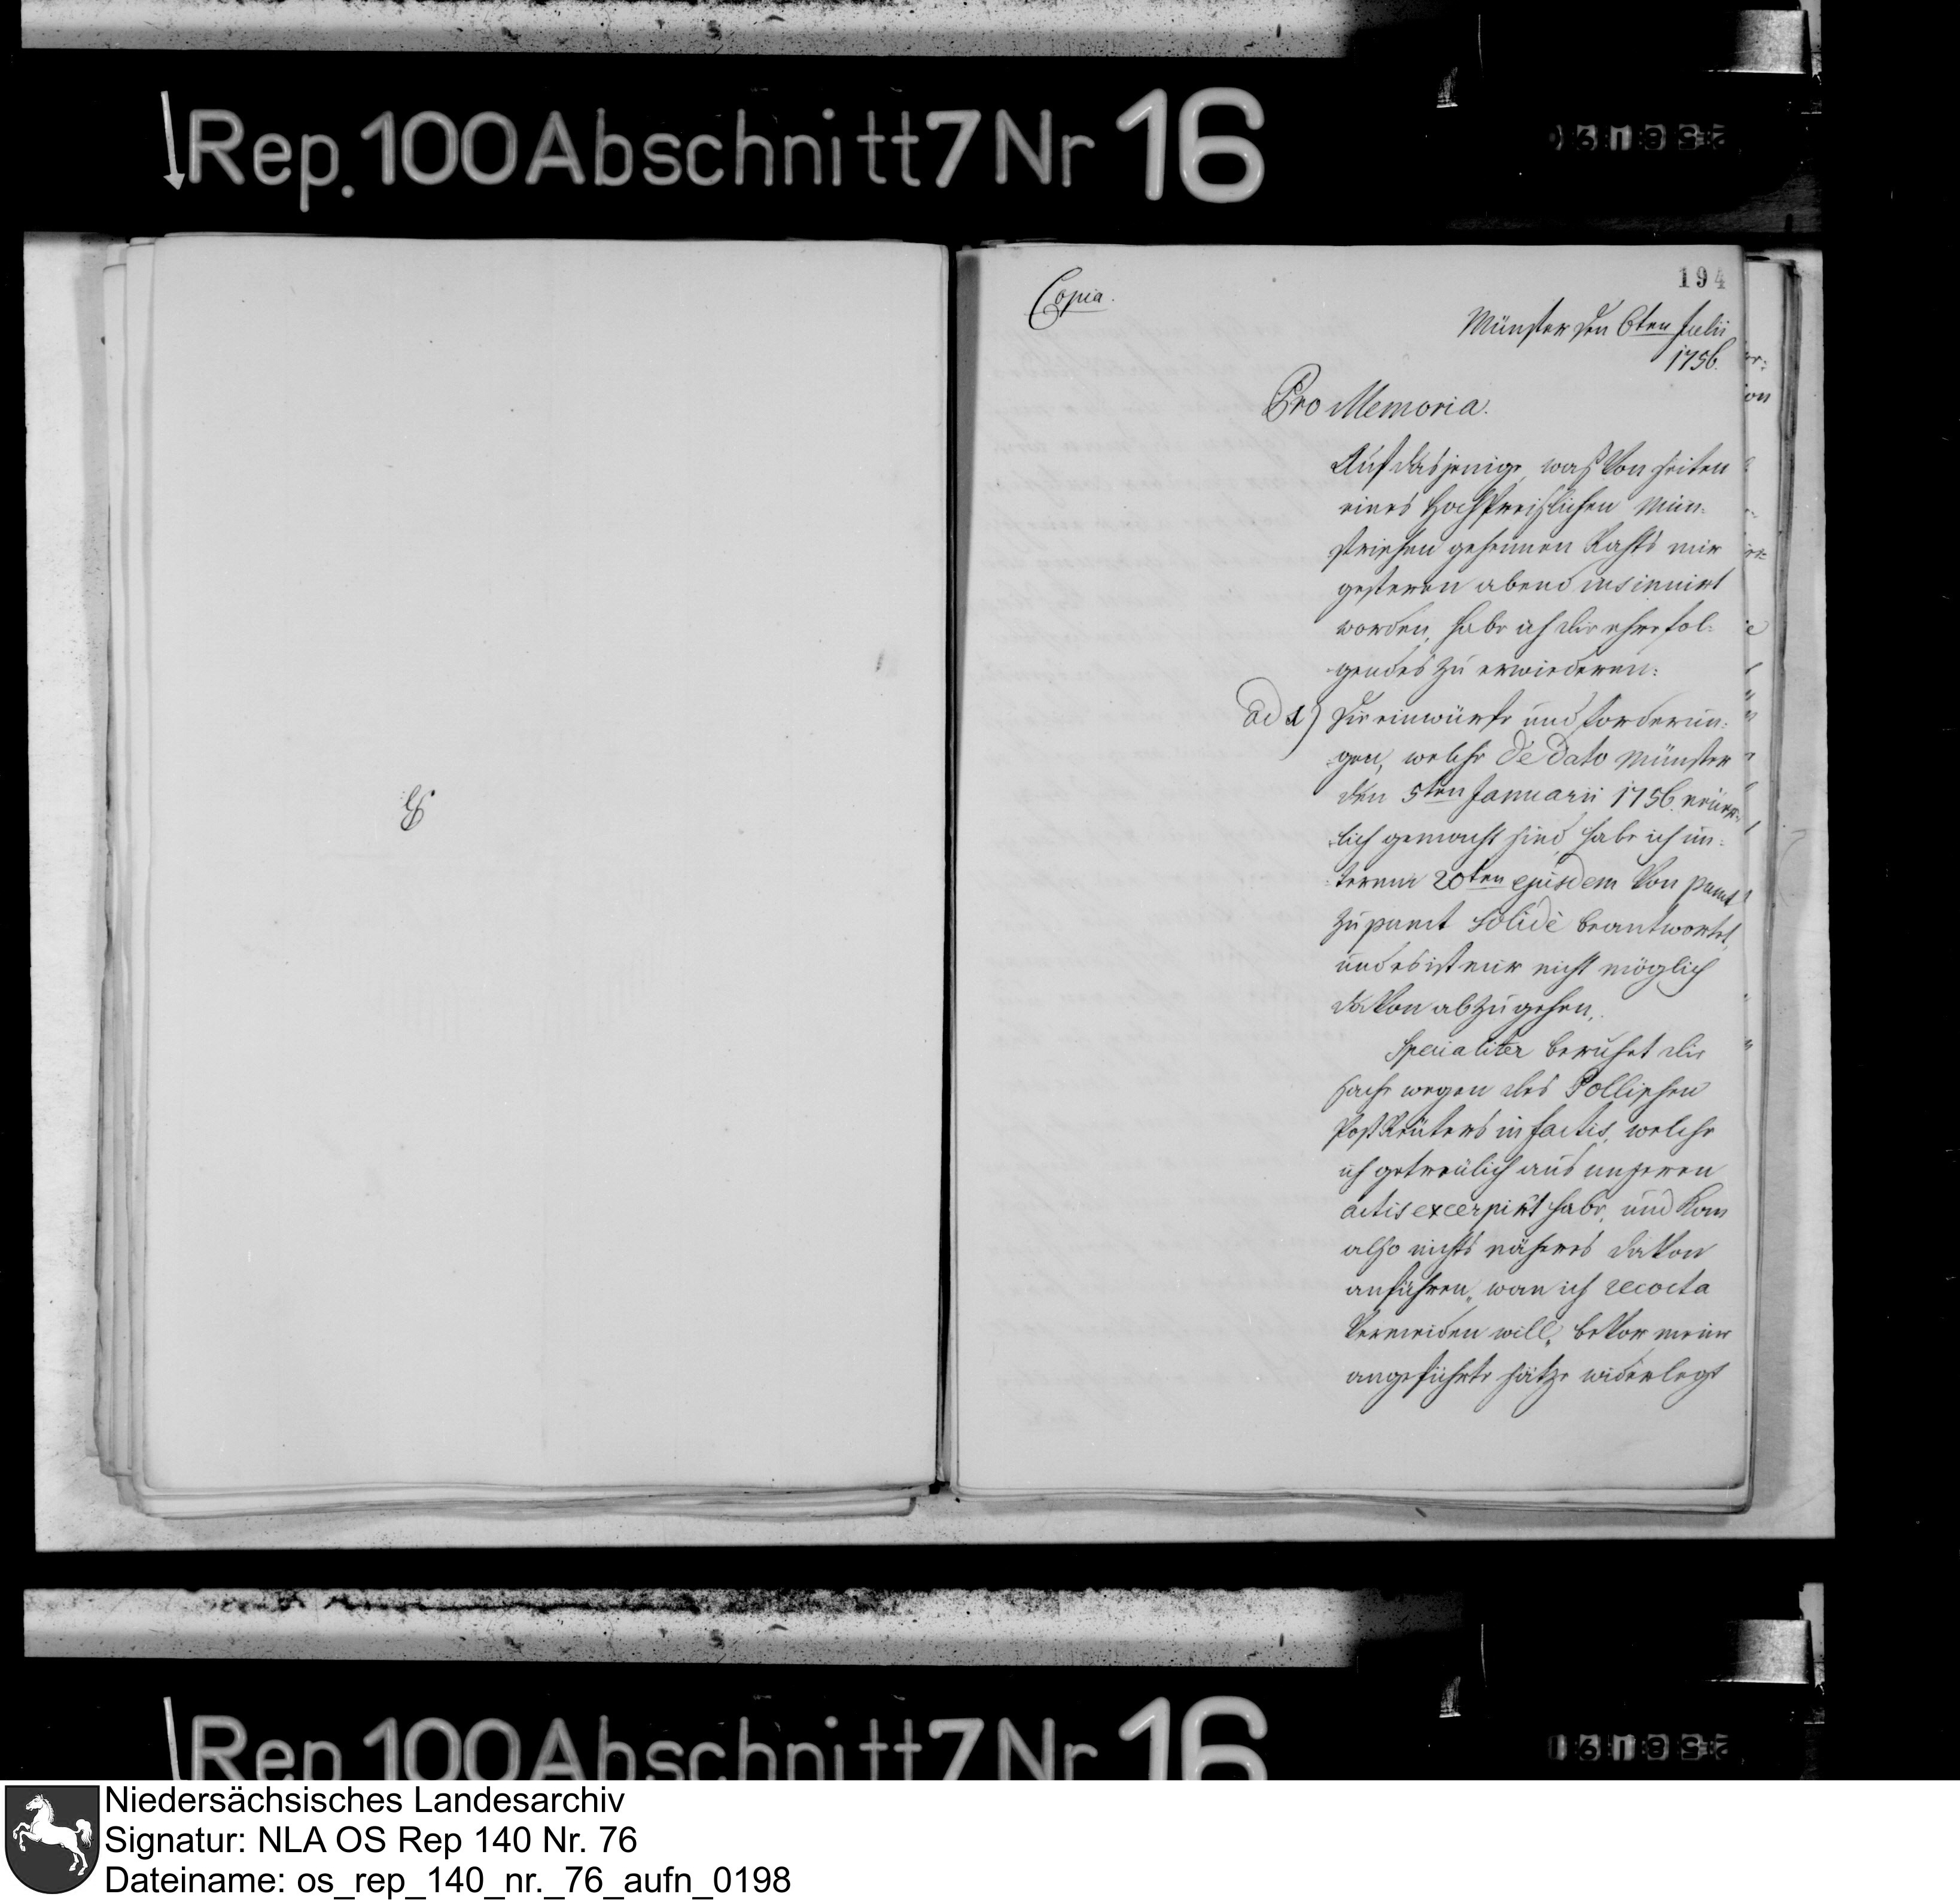 Rep. 100 Abschnitt 7 Nr 16
194
Copia.
Münster den 6ten Julii
1756.
Pro Memoria.
Auf dasjenige, waß von seiten
eines Hochpreißlichen Mün-
strischen geheimen Rahts mir
gesteren abend insinuirt
worden, habe ich die ehre fol-
gendes zu erwiederen:
ad 1) die einwürfe und forderun-
gen, welche de dato Münster
den 5ten Januarii 1756
lich gemacht sind, habe ich un-
term 20ten ejusdem von punct
zu punct solidè beantwortet,
und es ist mir nicht möglich
davon abzugehen.
Specialiter beruhet die
sache wegen des Pollischen
Post Reuters in factis, welche
ich getreulich aus unseren
actis excerpirt habe, und kan
also nichts näheres davon
anführen, wan ich recocta
vermeiden will, bevor meine
angeführte sätze widerlegt
Rep 100 Abschnitt 7 Nr 16
Niedersächsisches Landesarchiv
Signatur: NLA OS Rep 140 Nr. 76
Dateiname: os_rep_140_nr._76_aufn_0198